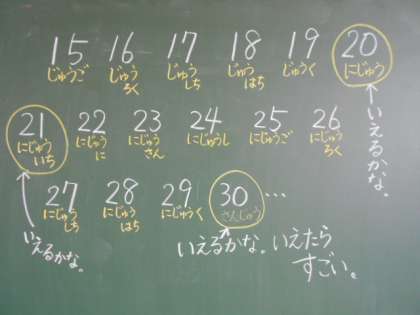 15 16 17 18 19 20
じゅうご じゅうろく じゅうしち じゅうはち じゅうく にじゅう
いえるかな。
21 22 23 24 25 26
にじゅういち にじゅうに にじゅうさん にじゅうし にじゅうご にじゅうろく
いえるかな。
27 28 29 30 …
にじゅうしち にじゅうはち にじゅうく さんじゅう
いえるかな。いえたら
すごい。